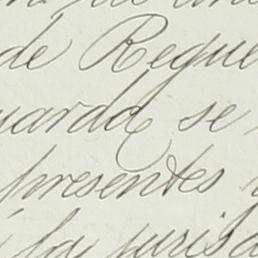 de Reque
uarda se
presentes
la juris